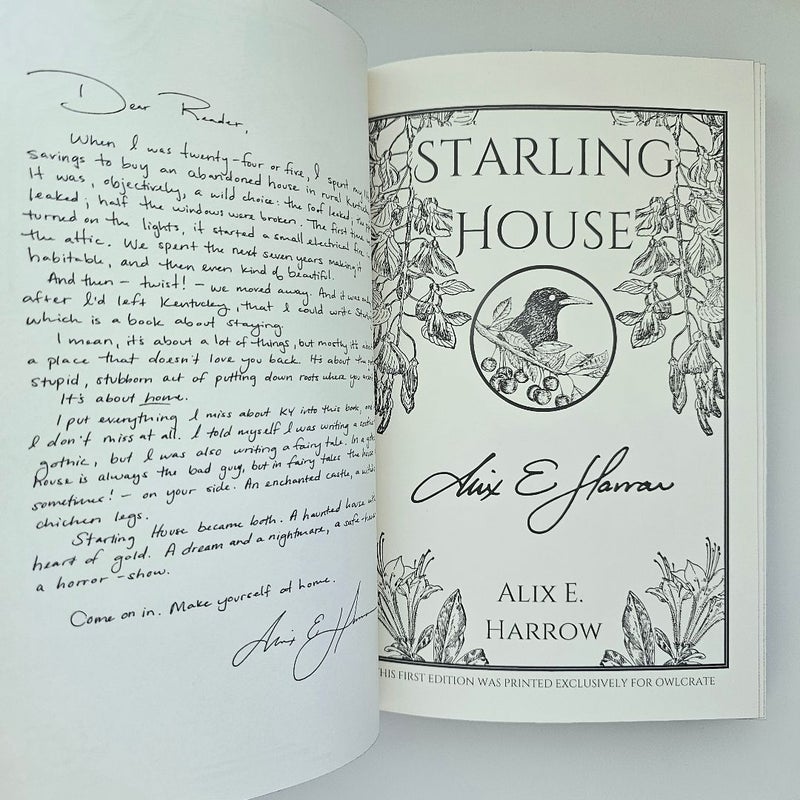 Dear Reader,
When I was twenty-four or five, I spent my
savings to buy an abandoned house in rural
It was, objectively, a wild choice: the roof leaked; the
leaked; half the windows were broken. The first time
turned on the lights, it started a small electrical fire
the attic. We spent the next seven years making it
habitable, and then even kind of beautiful.
And then - twist! - we moved away. And it was
after I'd left Kentucky, that I could write
which is a book about staying.
I mean, it's about a lot of things, but mostly it's
a place that doesn't love you back. It's about the
stupid, stubborn act of putting down roots where you
It's about home.
I put everything I miss about KY into this book, and
I don't miss at all. I told myself I was writing a
gothic, but I was also writing a fairy tale. In a
house is always the bad guy, but in fairy tales the house
sometimes! - on your side. An enchanted castle, a
chicken legs.
Starling House became both. A haunted house
heart of gold. A dream and a nightmare, a
a horror-show.
Come on in. Make yourself at home.
Alix E. Harrow
STARLING
HOUSE
Alix E Harrow
ALIX E.
HARROW
THIS FIRST EDITION WAS PRINTED EXCLUSIVELY FOR OWLCRATE